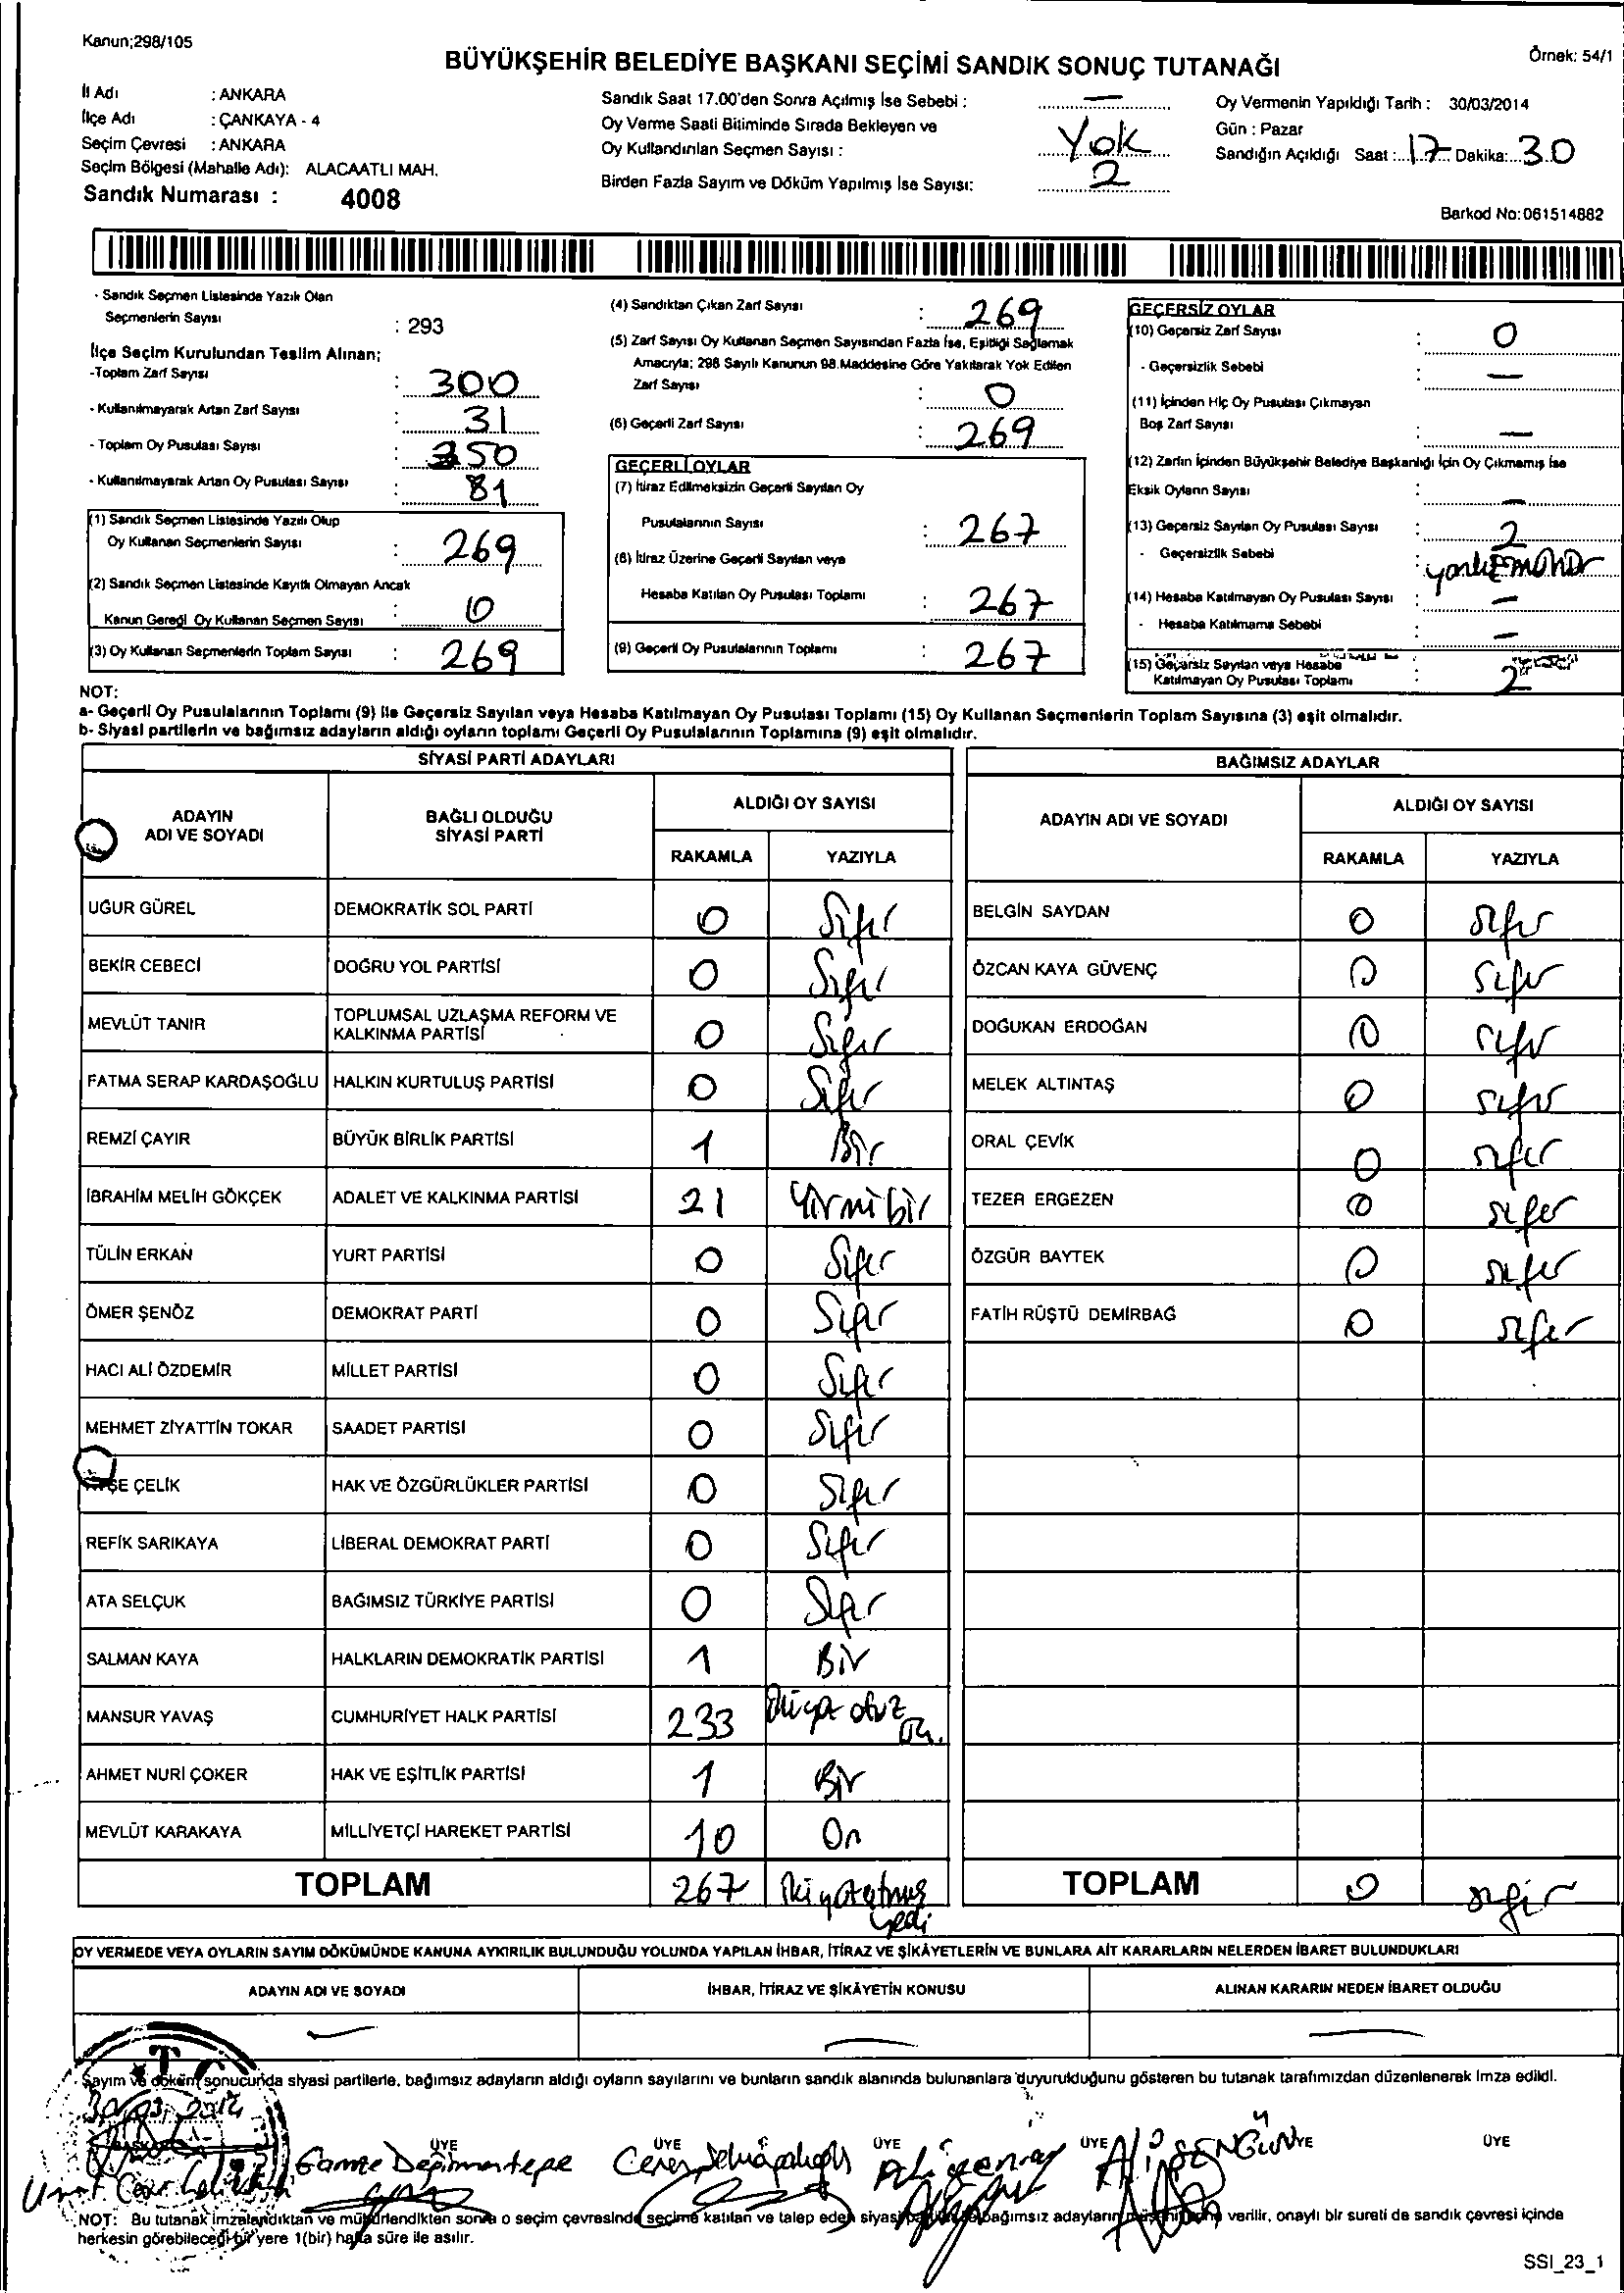 Kanun;298/105
BÜYÜKŞEHİR BELEDİYE BAŞKANI SEÇİMİ SANDIK SONUÇ TUTANAĞI
Örnek: 54/1
İl Adı : ANKARA
İlçe Adı : ÇANKAYA - 4
Seçim Çevresi : ANKARA
Seçim Bölgesi (Mahalle Adı): ALACAATLI MAH.
Sandık Numarası : 4008
Sandık Saat 17.00'den Sonra Açılmış İse Sebebi : —
Oy Verme Saati Bitiminde Sırada Bekleyen ve
Oy Kullandırılan Seçmen Sayısı : Yok
Birden Fazla Sayım ve Döküm Yapılmış İse Sayısı: 2
Oy Vermenin Yapıldığı Tarih : 30/03/2014
Gün : Pazar
Sandığın Açıldığı Saat : 17 Dakika: 30
Barkod No:061514882
- Sandık Seçmen Listesinde Yazılı Olan
Seçmenlerin Sayısı : 293
İlçe Seçim Kurulundan Teslim Alınan;
-Toplam Zarf Sayısı : 300
- Kullanılmayarak Artan Zarf Sayısı : 31
- Toplam Oy Pusulası Sayısı : 350
- Kullanılmayarak Artan Oy Pusulası Sayısı : 81
(1) Sandık Seçmen Listesinde Yazılı Olup
Oy Kullanan Seçmenlerin Sayısı : 269
(2) Sandık Seçmen Listesinde Kayıtlı Olmayan Ancak
Kanun Gereği Oy Kullanan Seçmen Sayısı :
(3) Oy Kullanan Seçmenlerin Toplam Sayısı : 269
(4) Sandıktan Çıkan Zarf Sayısı : 269
(5) Zarf Sayısı Oy Kullanan Seçmen Sayısından Fazla İse, Eşitliği Sağlamak
Amacıyla; 298 Sayılı Kanunun 98.Maddesine Göre Yakılarak Yok Edilen
Zarf Sayısı : 0
(6) Geçerli Zarf Sayısı : 269
GEÇERLİ OYLAR
(7) İtiraz Edilmeksizin Geçerli Sayılan Oy
Pusulalarının Sayısı : 267
(8) İtiraz Üzerine Geçerli Sayılan veya
Hesaba Katılan Oy Pusulası Toplamı : 267
(9) Geçerli Oy Pusulalarının Toplamı : 267
GEÇERSİZ OYLAR
(10) Geçersiz Zarf Sayısı : 0
- Geçersizlik Sebebi : —
(11) İçinden Hiç Oy Pusulası Çıkmayan
Boş Zarf Sayısı : —
(12) Zarfın İçinden Büyükşehir Belediye Başkanlığı İçin Oy Çıkmamış İse
Eksik Oyların Sayısı : —
(13) Geçersiz Sayılan Oy Pusulası Sayısı : 2
- Geçersizlik Sebebi :
(14) Hesaba Katılmayan Oy Pusulası Sayısı : —
- Hesaba Katılmama Sebebi : —
(15) Geçersiz Sayılan veya Hesaba
Katılmayan Oy Pusulası Toplamı : 2
NOT:
a- Geçerli Oy Pusulalarının Toplamı (9) ile Geçersiz Sayılan veya Hesaba Katılmayan Oy Pusulası Toplamı (15) Oy Kullanan Seçmenlerin Toplam Sayısına (3) eşit olmalıdır.
b- Siyasi partilerin ve bağımsız adayların aldığı oyların toplamı Geçerli Oy Pusulalarının Toplamına (9) eşit olmalıdır.
SİYASİ PARTİ ADAYLARI
ADAYIN ADI VE SOYADI BAĞLI OLDUĞU SİYASİ PARTİ ALDIĞI OY SAYISI
RAKAMLA YAZIYLA
UĞUR GÜREL DEMOKRATİK SOL PARTİ 0 Sıfır
BEKİR CEBECİ DOĞRU YOL PARTİSİ 0 Sıfır
MEVLÜT TANIR TOPLUMSAL UZLAŞMA REFORM VE KALKINMA PARTİSİ 0 Sıfır
FATMA SERAP KARDAŞOĞLU HALKIN KURTULUŞ PARTİSİ 0 Sıfır
REMZİ ÇAYIR BÜYÜK BİRLİK PARTİSİ 1 Bir
İBRAHİM MELİH GÖKÇEK ADALET VE KALKINMA PARTİSİ 21 Yirmi bir
TÜLİN ERKAN YURT PARTİSİ 0 Sıfır
ÖMER ŞENÖZ DEMOKRAT PARTİ 0 Sıfır
HACI ALİ ÖZDEMİR MİLLET PARTİSİ 0 Sıfır
MEHMET ZİYATTİN TOKAR SAADET PARTİSİ 0 Sıfır
ÇELİK HAK VE ÖZGÜRLÜKLER PARTİSİ 0 Sıfır
REFİK SARIKAYA LİBERAL DEMOKRAT PARTİ 0 Sıfır
ATA SELÇUK BAĞIMSIZ TÜRKİYE PARTİSİ 0 Sıfır
SALMAN KAYA HALKLARIN DEMOKRATİK PARTİSİ 1 Bir
MANSUR YAVAŞ CUMHURİYET HALK PARTİSİ 233 otuz
AHMET NURİ ÇOKER HAK VE EŞİTLİK PARTİSİ 1 Bir
MEVLÜT KARAKAYA MİLLİYETÇİ HAREKET PARTİSİ 10 On
TOPLAM 267 yedi
BAĞIMSIZ ADAYLAR
ADAYIN ADI VE SOYADI ALDIĞI OY SAYISI
RAKAMLA YAZIYLA
BELGİN SAYDAN 0 sıfır
ÖZCAN KAYA GÜVENÇ 0 sıfır
DOĞUKAN ERDOĞAN 0 sıfır
MELEK ALTINTAŞ 0 sıfır
ORAL ÇEVİK 0 sıfır
TEZER ERGEZEN 0 sıfır
ÖZGÜR BAYTEK 0 sıfır
FATİH RÜŞTÜ DEMİRBAĞ 0 sıfır
TOPLAM 0 sıfır
OY VERMEDE VEYA OYLARIN SAYIM DÖKÜMÜNDE KANUNA AYKIRILIK BULUNDUĞU YOLUNDA YAPILAN İHBAR, İTİRAZ VE ŞİKÂYETLERİN VE BUNLARA AİT KARARLARIN NELERDEN İBARET BULUNDUKLARI
ADAYIN ADI VE SOYADI İHBAR, İTİRAZ VE ŞİKÂYETİN KONUSU ALINAN KARARIN NEDEN İBARET OLDUĞU
Sayım ve döküm sonucunda siyasi partilerle, bağımsız adayların aldığı oyların sayılarını ve bunların sandık alanında bulunanlara duyurulduğunu gösteren bu tutanak tarafımızdan düzenlenerek imza edildi.
ÜYE ÜYE ÜYE ÜYE ÜYE ÜYE
Ali ŞENGÜN
NOT: Bu tutanak imzalandıktan ve mühürlendikten sonra o seçim çevresinde seçime katılan ve talep eden bağımsız adayların verilir, onaylı bir sureti de sandık çevresi içinde
herkesin görebileceği bir yere 1(bir) hafta süre ile asılır.
SSI_23_1